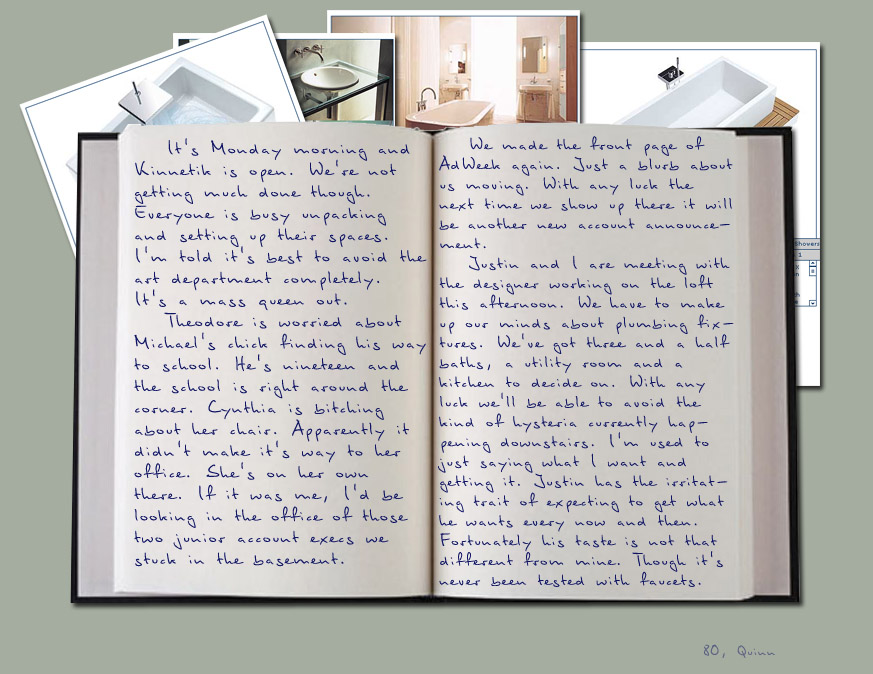 It's Monday morning and
Kinnetik is open. We're not
getting much done though.
Everyone is busy unpacking
and setting up their spaces.
I'm told it's best to avoid the
art department completely.
It's a mass queen out.
Theodore is worried about
Michael's chick finding his way
to school. He's nineteen and
the school is right around the
corner. Cynthia is bitching
about her chair. Apparently it
didn't make it's way to her
office. She's on her own
there. If it was me, I'd be
looking in the office of those
two junior account execs we
stuck in the basement.
We made the front page of
AdWeek again. Just a blurb about
us moving. With any luck the
next time we show up there it will
be another new account announce-
ment.
Justin and I are meeting with
the designer working on the loft
this afternoon. We have to make
up our minds about plumbing fix-
tures. We've got three and a half
baths, a utility room and a
kitchen to decide on. With any
luck we'll be able to avoid the
kind of hysteria currently hap-
pening downstairs. I'm used to
just saying what I want and
getting it. Justin has the irritat-
ing trait of expecting to get what
he wants every now and then.
Fortunately his taste is not that
different from mine. Though it's
never been tested with faucets.
Showers
1
80, Quinn